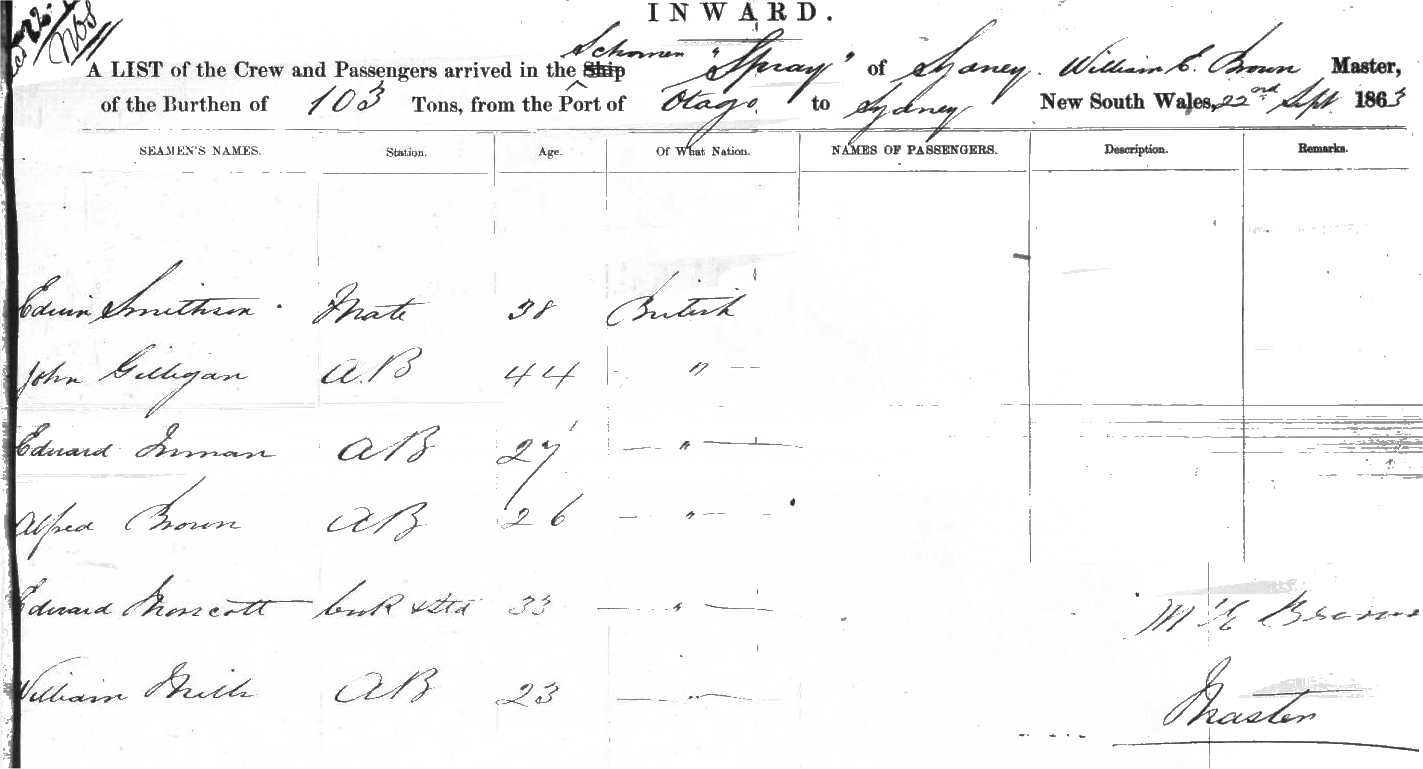 INWARD.
Schooner
A LIST of the Crew and Passengers arrived in the Ship "Spray" of Sydney William E. Brown Master,
of the Burthen of 103 Tons, from the Port of Otago to Sydney New South Wales, 22nd Sept 1863
SEAMEN'S NAMES. Station. Age. Of What Nation. NAMES OF PASSENGERS. Description. Remarks.
Edwin Smithson Mate 38 British
John Gilligan A.B 44 "
Edward Inman AB 27 "
Alfred Brown AB 26 "
Edward Cook & Std 33 "
William Mills AB 23 "
Brown
Master